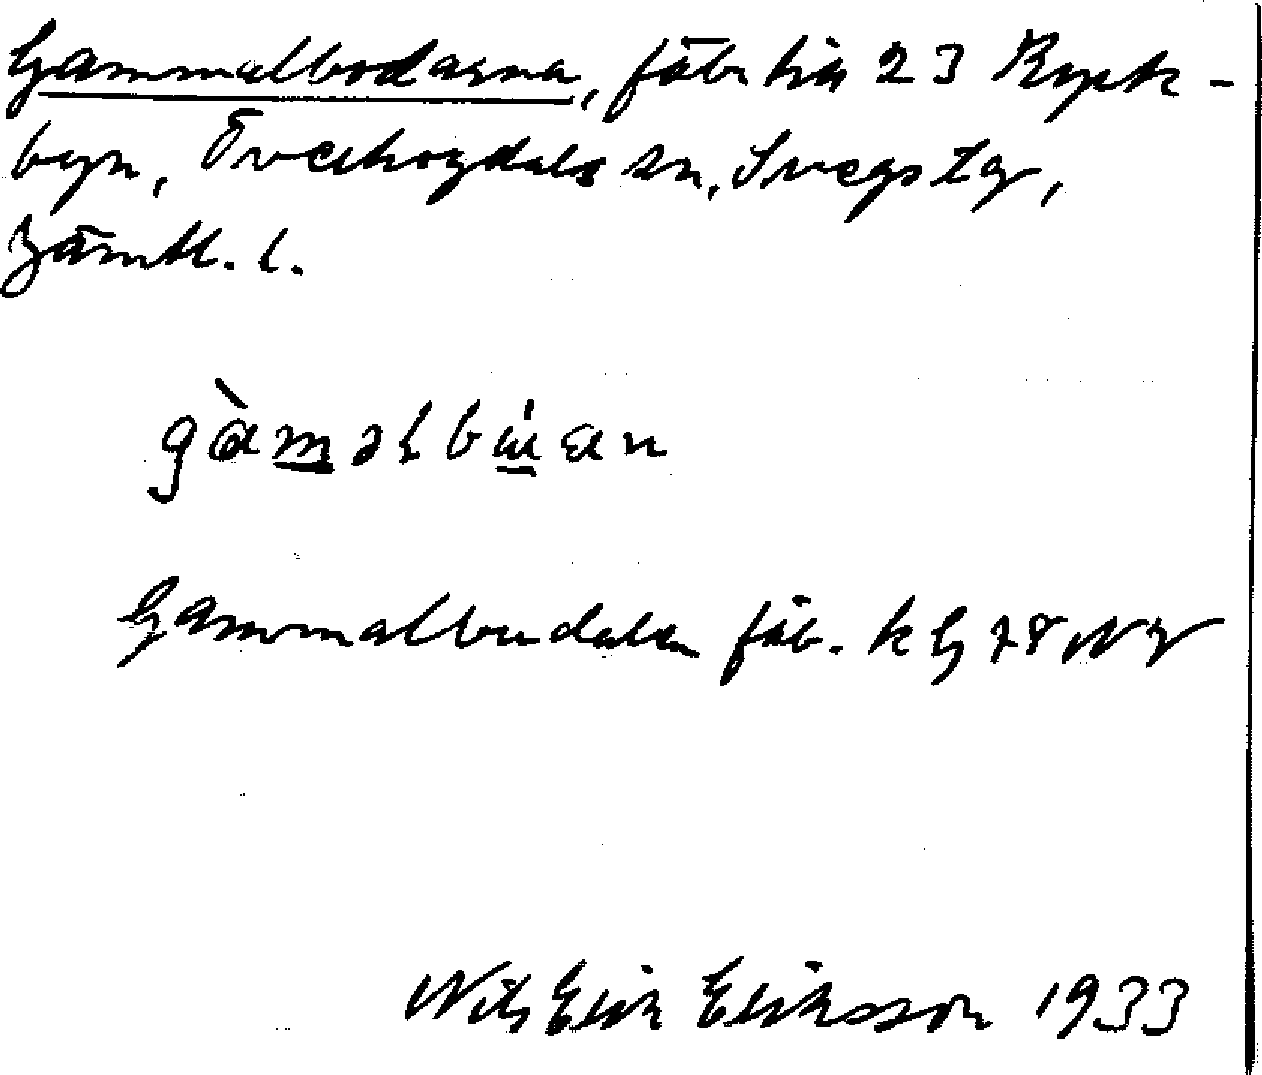 Gammalbodarna, fäbr his 23 Kyrk-
byn, Överhogdals sn, Svegs tg,
Jämtl. l.
gàmǝlbúan
Gammalbudalen fäb. k G 78 NV
Nils Erik Eriksson 1933